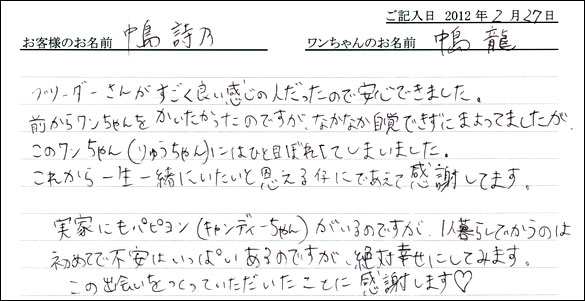 ご記入日 2012年2月27日
お客様のお名前 中島 詩乃 ワンちゃんのお名前 中島 龍
ブリーダーさんがすごく良い感じの人だったので安心できました。
前からワンちゃんをかいたかったのですが、なかなか自覚できずにまよってましたが、
このワンちゃん(りゅうちゃん)にはひと目ぼれしてしまいました。
これから一生一緒にいたいと思える仔にであえて感謝してます。
実家にもパピヨン(キャンディーちゃん)がいるのですが、1人暮らしでかうのは
初めてで不安はいっぱいあるのですが、絶対幸せにしてみます。
この出会いをつくっていただいたことに感謝します♡